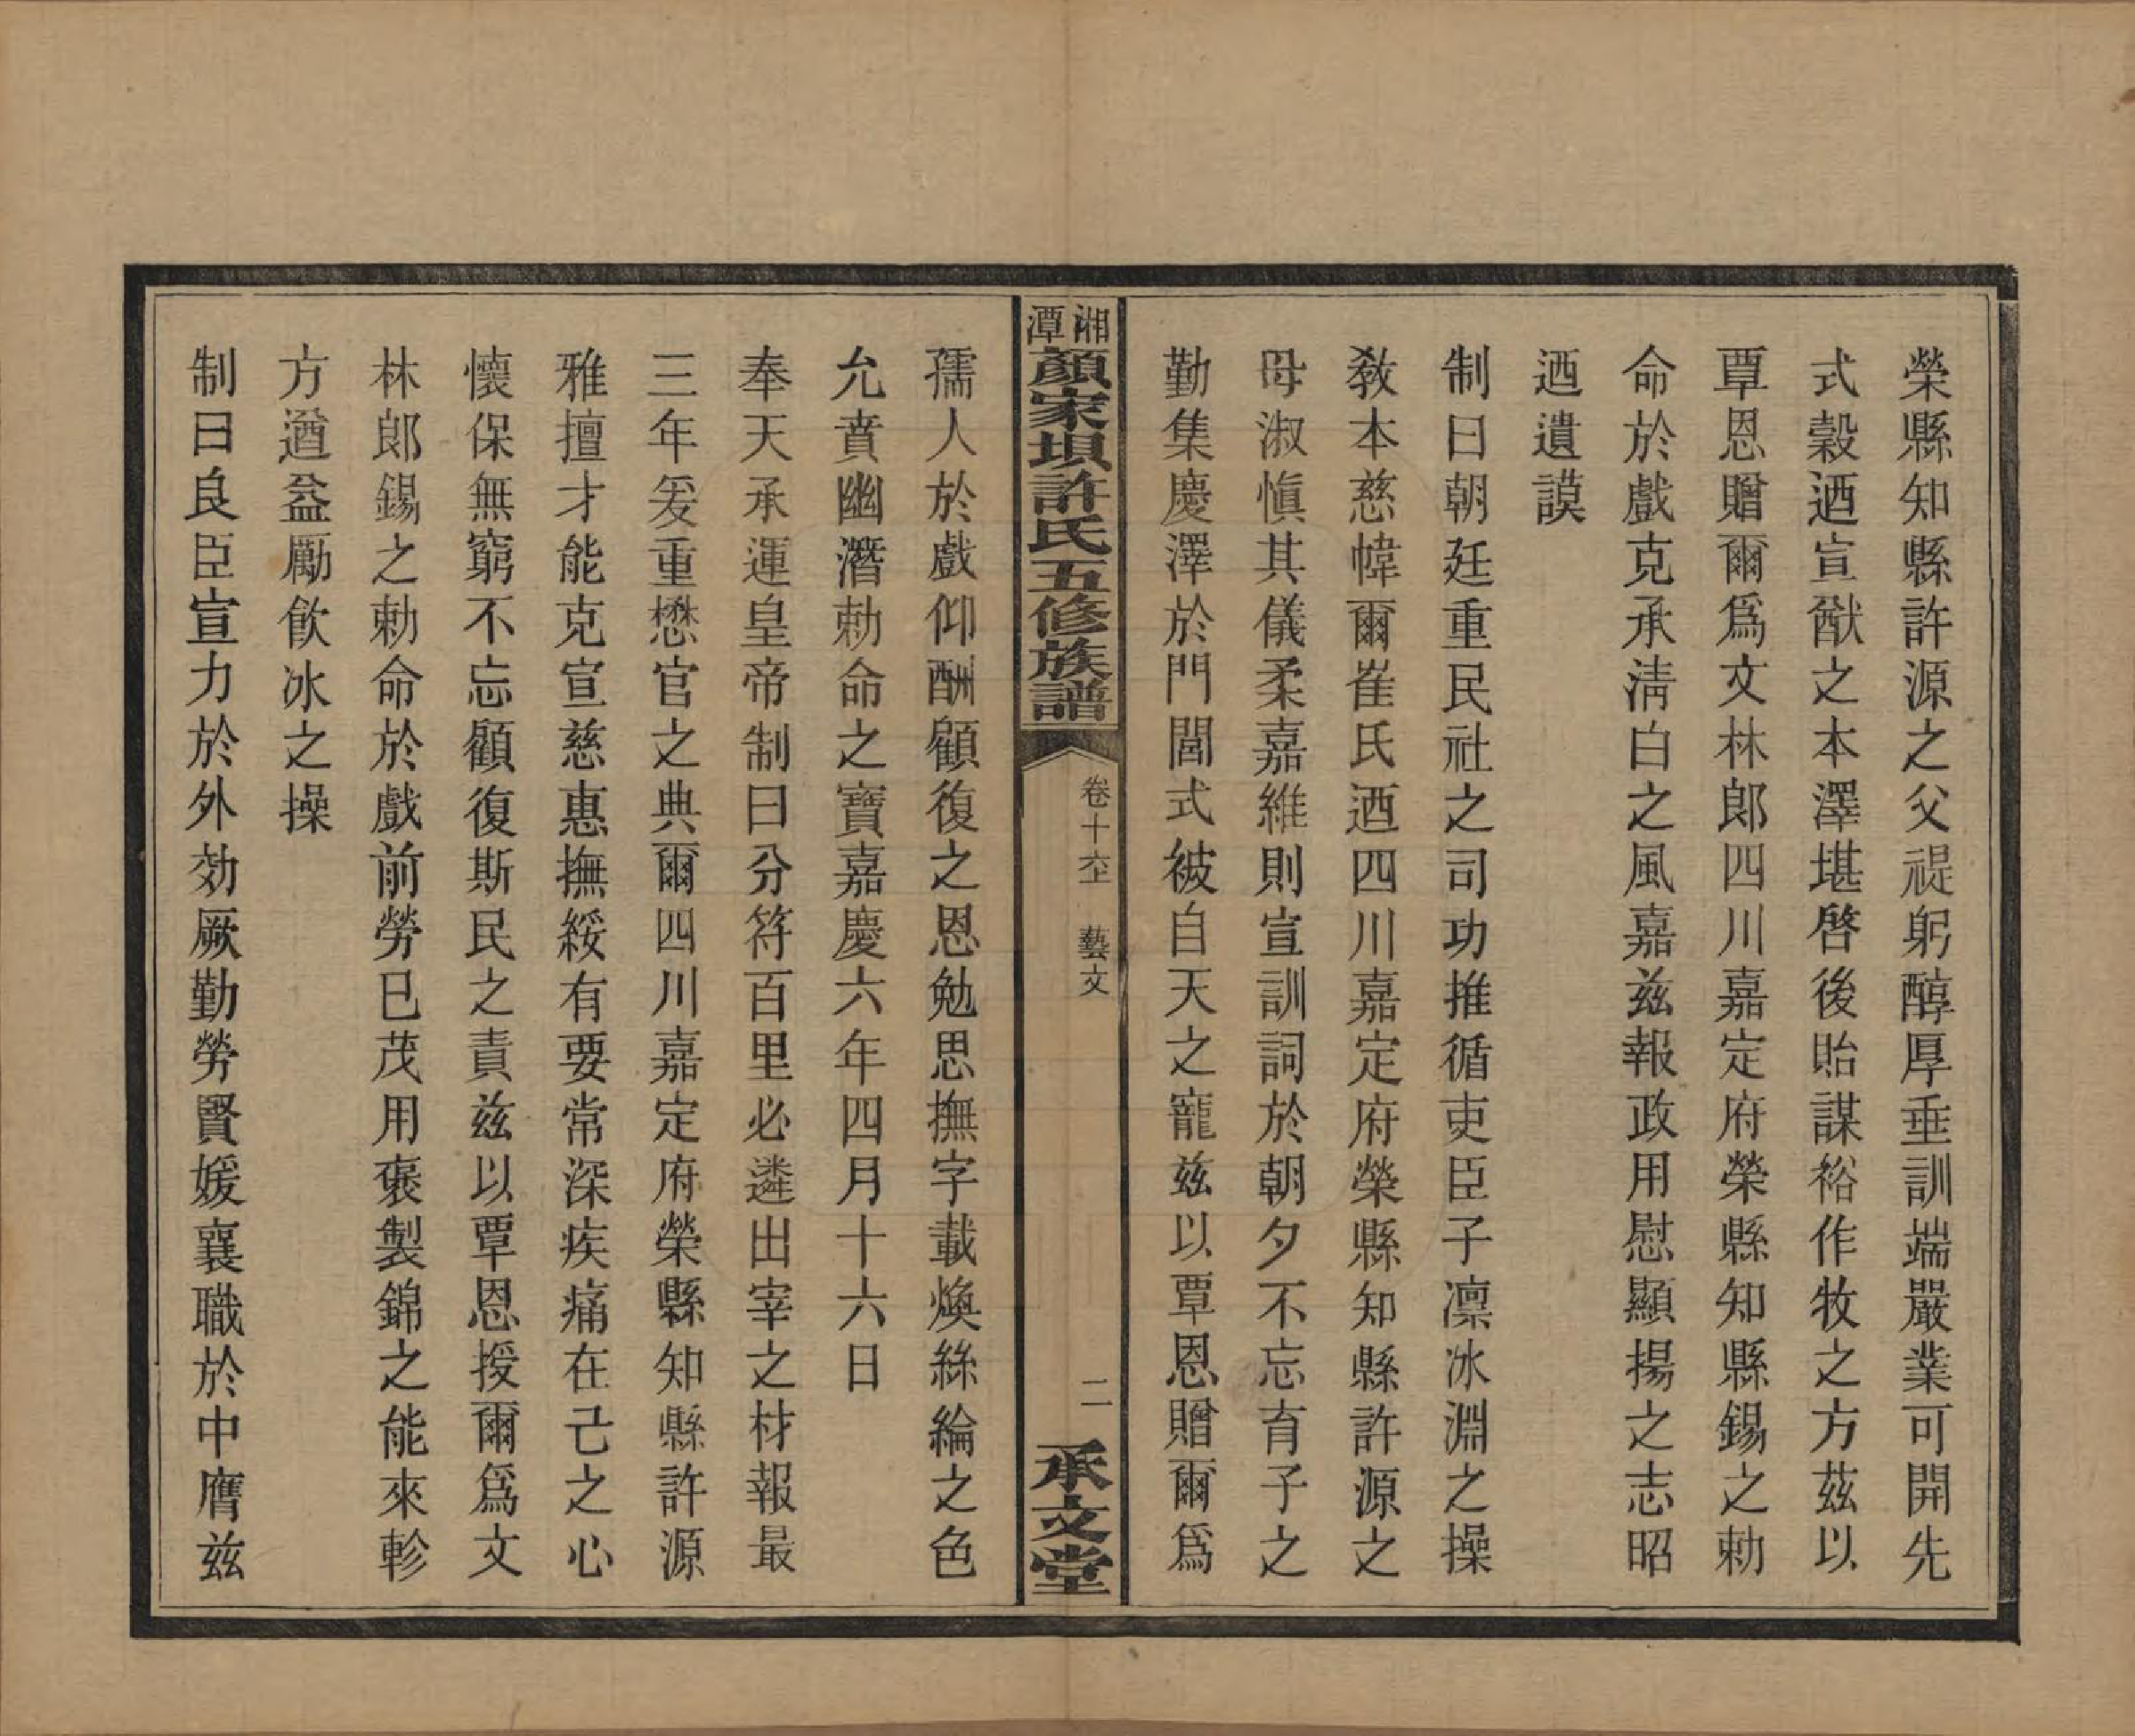 榮縣知縣許源之父禔躬醇厚垂訓端嚴業可開先
式穀迺宣猷之本澤堪啓後貽謀裕作牧之方茲以
覃恩贈爾爲文林郎四川嘉定府榮縣知縣錫之勅
命於戲克承淸白之風嘉茲報政用慰顯揚之志昭
迺遺謨
制曰朝廷重民社之司功推循吏臣子凛冰淵之操
敎本慈幃爾崔氏迺四川嘉定府榮縣知縣許源之
母淑愼其儀柔嘉維則宣訓詞於朝夕不忘育子之
勤集慶澤於門閭式被自天之寵茲以覃恩贈爾爲
湘潭顏家垻許氏五修族譜
卷十六 藝文
二
承文堂
孺人於戲仰酬顧復之恩勉思撫字載煥絲綸之色
允賁幽潛勅命之寶嘉慶六年四月十六日
奉天承運皇帝制曰分符百里必遴出宰之材報最
三年爰重懋官之典爾四川嘉定府榮縣知縣許源
雅擅才能克宣慈惠撫綏有要常深疾痛在己之心
懷保無窮不忘顧復斯民之責茲以覃恩授爾爲文
林郎錫之勅命於戲前勞已茂用褒製錦之能來軫
方遒益勵飮冰之操
制曰良臣宣力於外効厥勤勞賢媛襄職於中膺茲